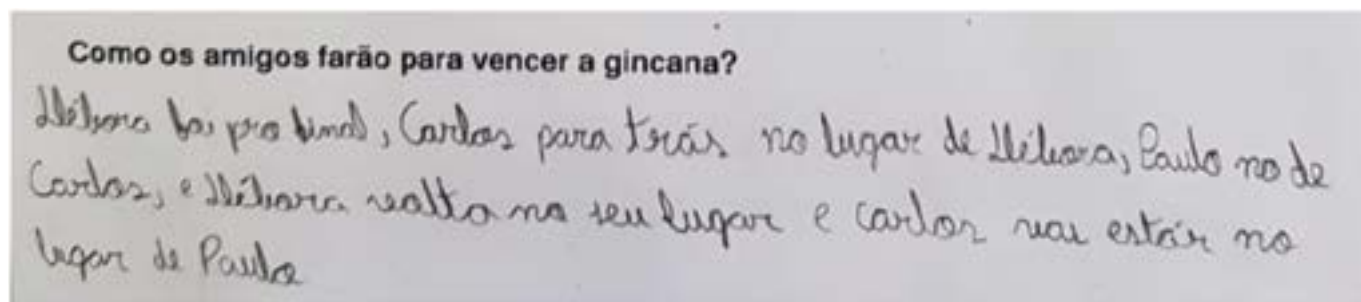 Como os amigos farão para vencer a gincana?
Débora pro, Carlos para trás no lugar de Débora, Paulo no de
Carlos, e Débora volta no seu lugar e carlos vai estár no
lugar de Paulo